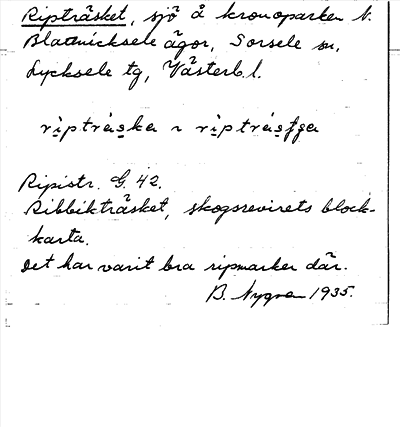 Ripträsket, sjö å kronoparken N.
Blattnicksele ägor, Sorsele sn,
Lycksele tg, Västerb. l.
riptráska ~ riptrásfga
Ripistr. G. 42.
Ribbikträsket, skogsrevirets block-
karta.
Det har varit bra ripmarker där.
B. Nygren 1935.